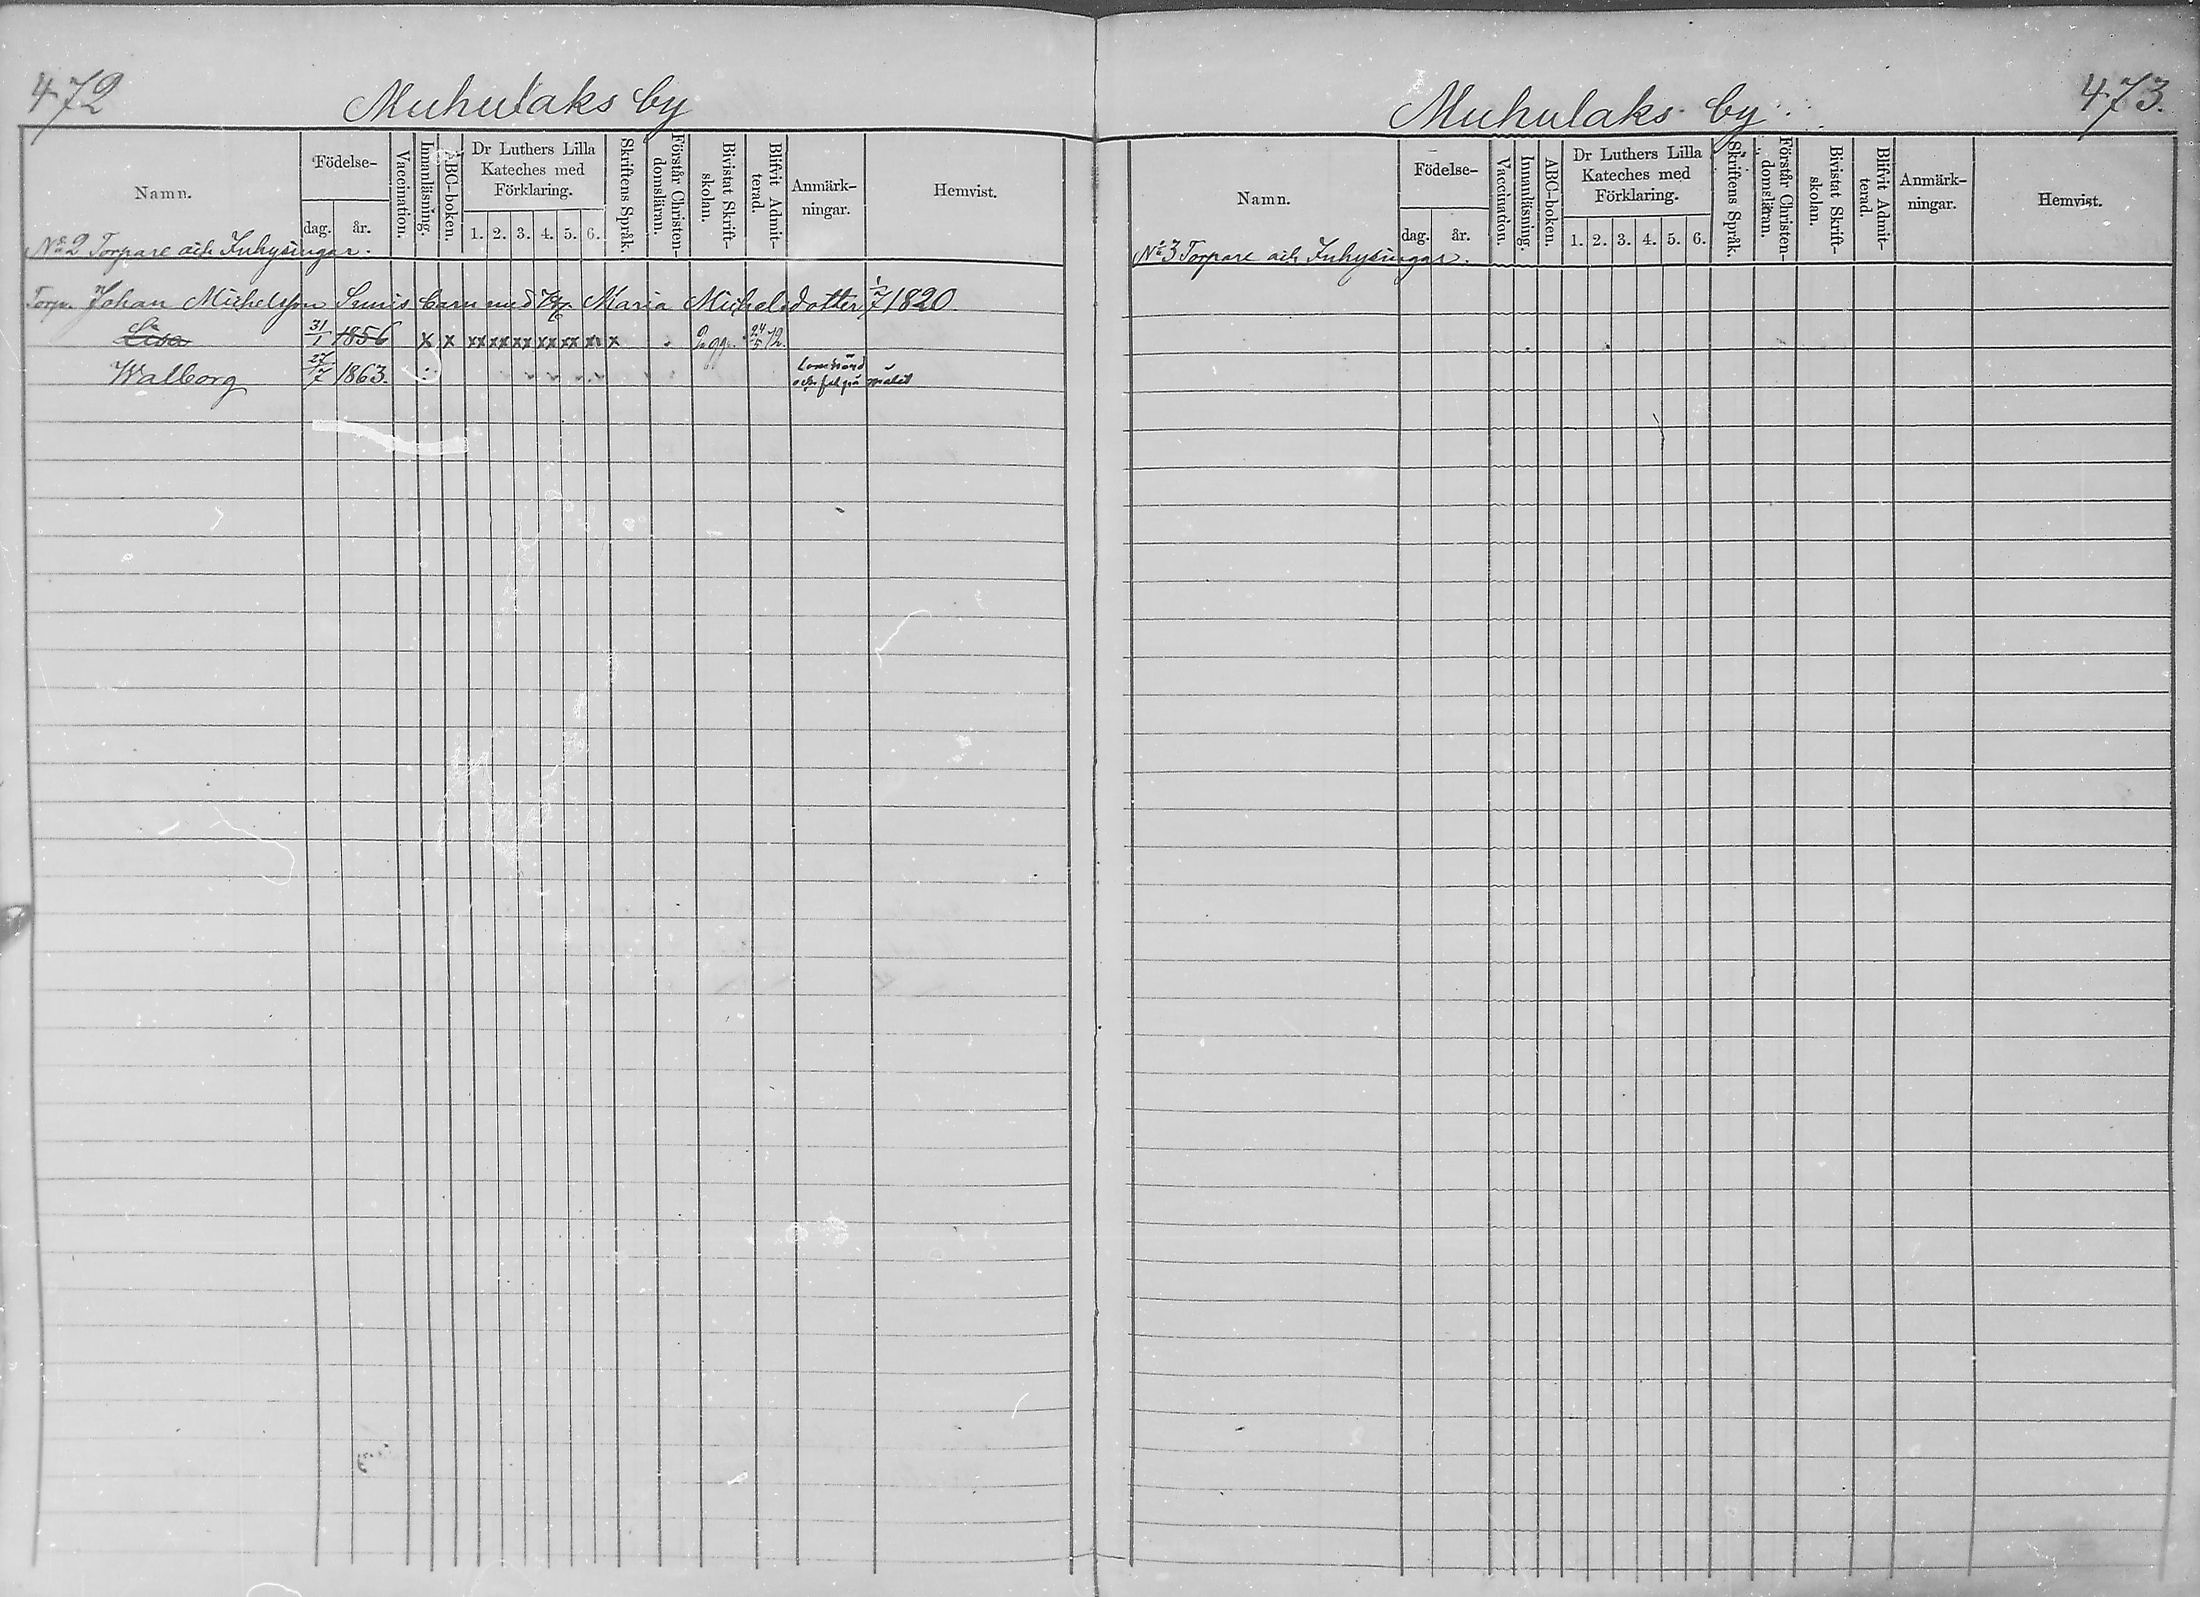 472
Muhulaks by
Namn.
Födelse-
dag.
år.
Vaccination.
Innanläsning.
ABC-boken.
Dr Luthers Lilla
Kateches med
Förklaring.
1. 2. 3. 4. 5. 6.
Skriftens Språk.
Förstår Christen-
domsläran.
Bivistat Skrift-
skolan.
Blifvit Admit-
terad.
Anmärk-
ningar.
Hemvist.
No 2 Torpare och Inhysingar.
Torp. Johan Michelsson barn med Maria Michelsdotter 1/7 1820
Lisa 31/1 1856 x x xx xx xx xx xx x x 2 ggr. 24/5 72.
Walborg 27/7 1863.
och fel på målet
Muhulaks by
473.
Namn.
Födelse-
dag.
år.
Vaccination.
Innanläsning.
ABC-boken.
Dr Luthers Lilla
Kateches med
Förklaring.
1. 2. 3. 4. 5. 6.
Skriftens Språk.
Förstår Christen-
domsläran.
Bivistat Skrift-
skolan.
Blifvit Admit-
terad.
Anmärk-
ningar.
Hemvist.
No 3 Torpare och Inhysingar.